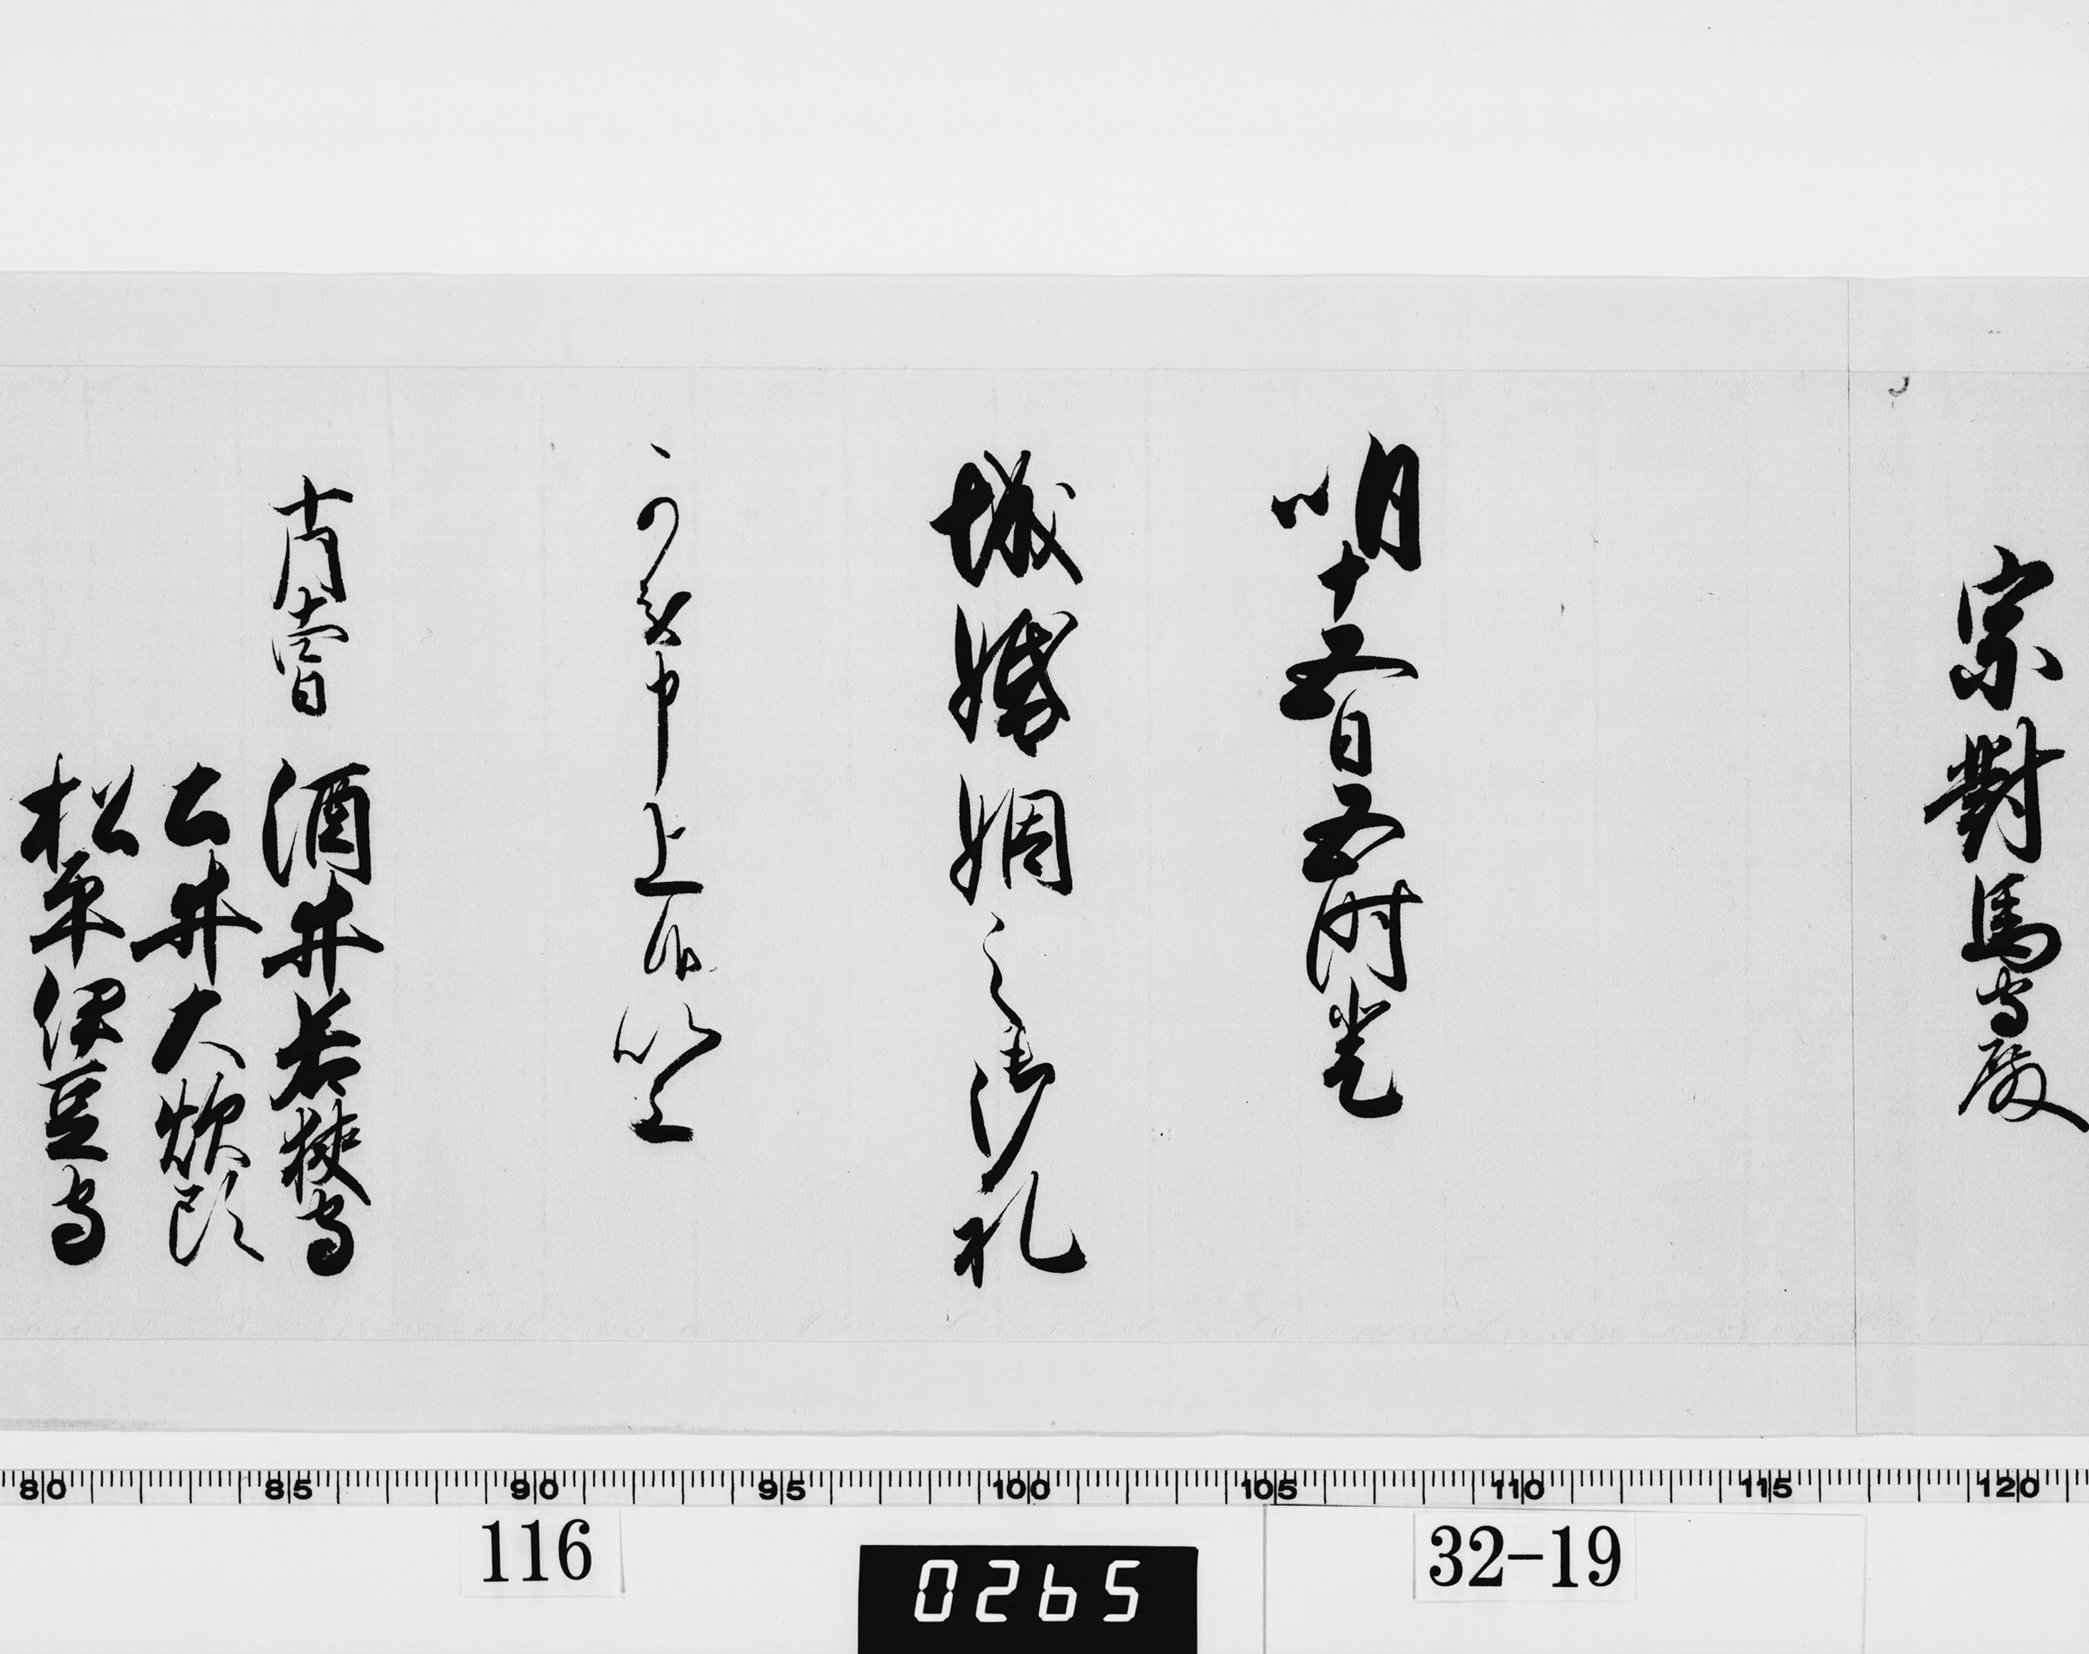 宗對馬守殿
明十五日五時登
城婚姻之御礼
可被申上候以上
十月十四日 酒井若狭守
土井大炊頭
松平伊豆守
80 85 90 95 100 105 110 115 120
116
0265
32-19